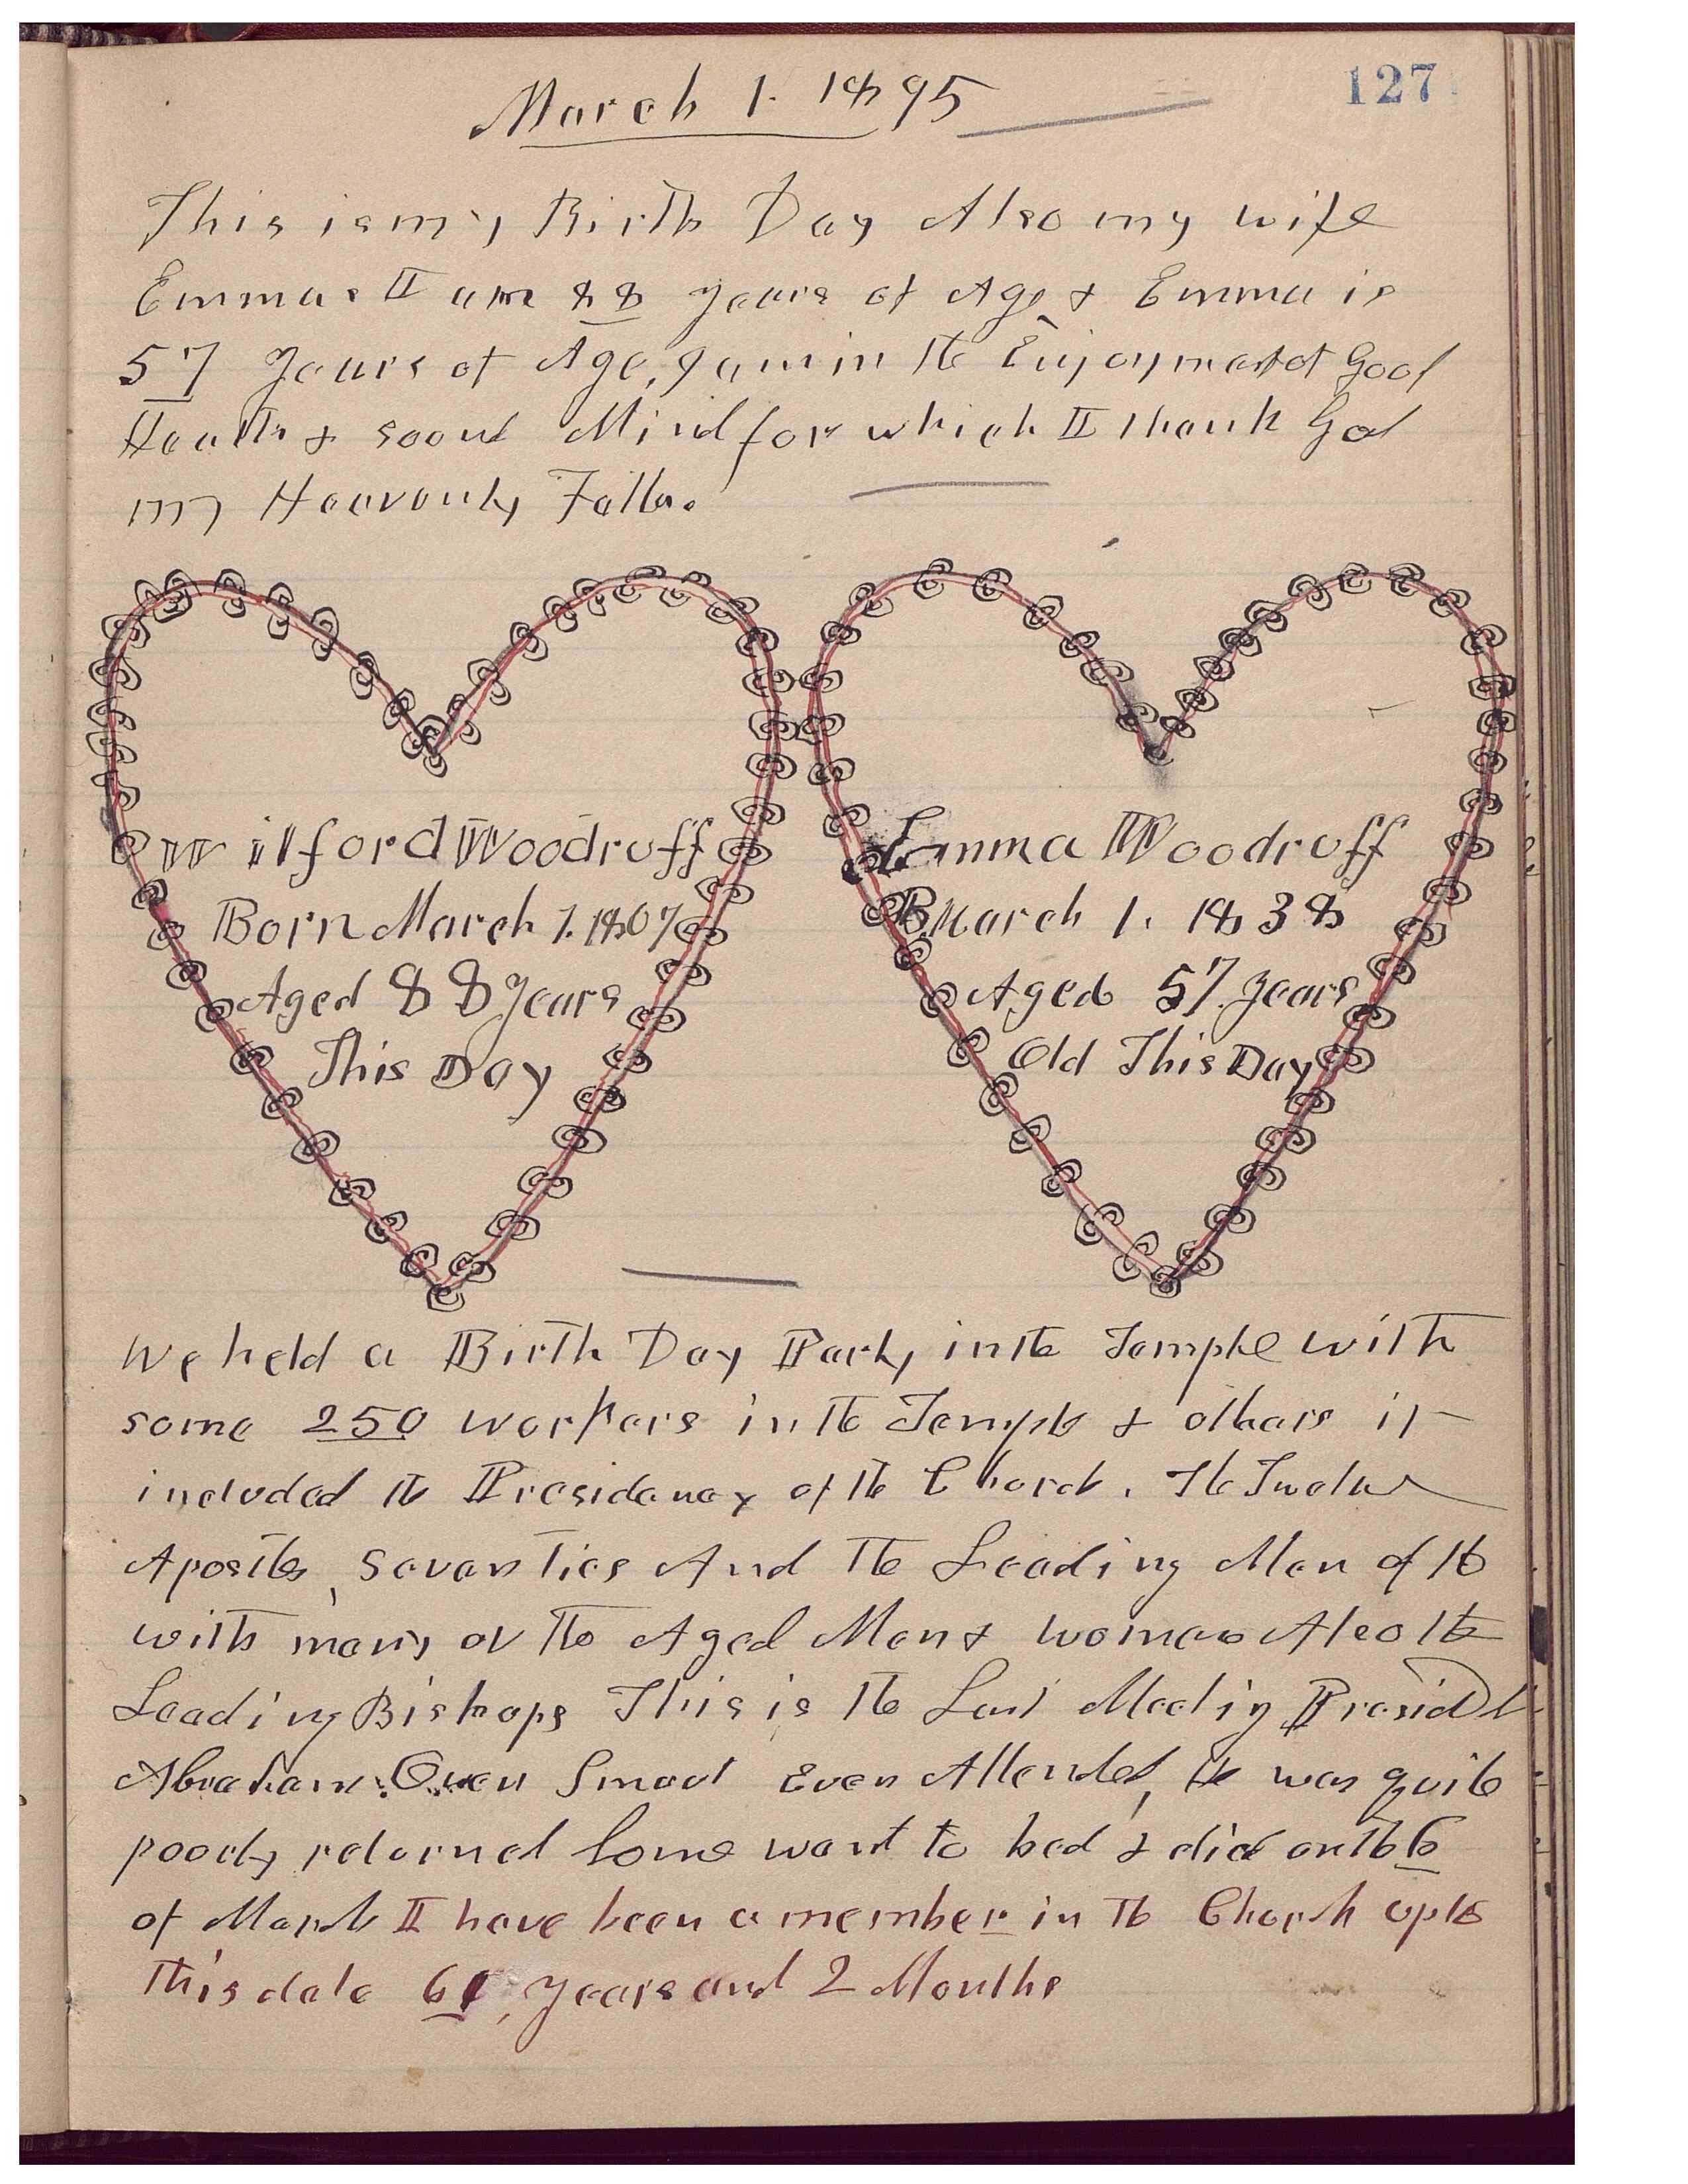 127
March 1. 1895
This is my Birth Day Also my wife
Emmas I am 88 years of Age & Emma is
57 years of Age, I am in the Enjoyment of Good
Health & sound Mind for which I thank God
my Heavenly Father.
Wilford Woodruff
Born March 1. 1807
Aged 88 years
This Day
Emma Woodruff
B March 1. 1838
Aged 57 years
Old This Day
We held a Birth Day Party in the Temple with
some 250 workers in the Temple & others it
included the Presidency of the Church. The Twelve
Apostles, Seventies And the Leading Men of the
with many of the Aged Men & women Also the
Leading Bishops This is the Last Meeting Presidt
Abraham Owen Smoot Ever Attended, He was quite
poorly returned home went to bed & died on the 6
of March I have been a member in the Church up to
this date 61 years and 2 Months